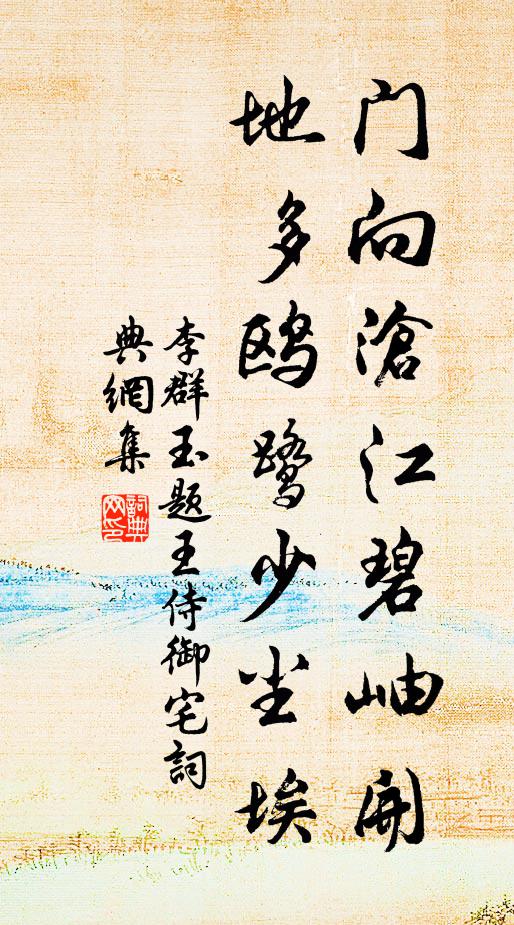 门向滄江碧岫開
地多鸥鹭少尘埃
李群玉题王侍御宅詞
典網集
詞典
网印